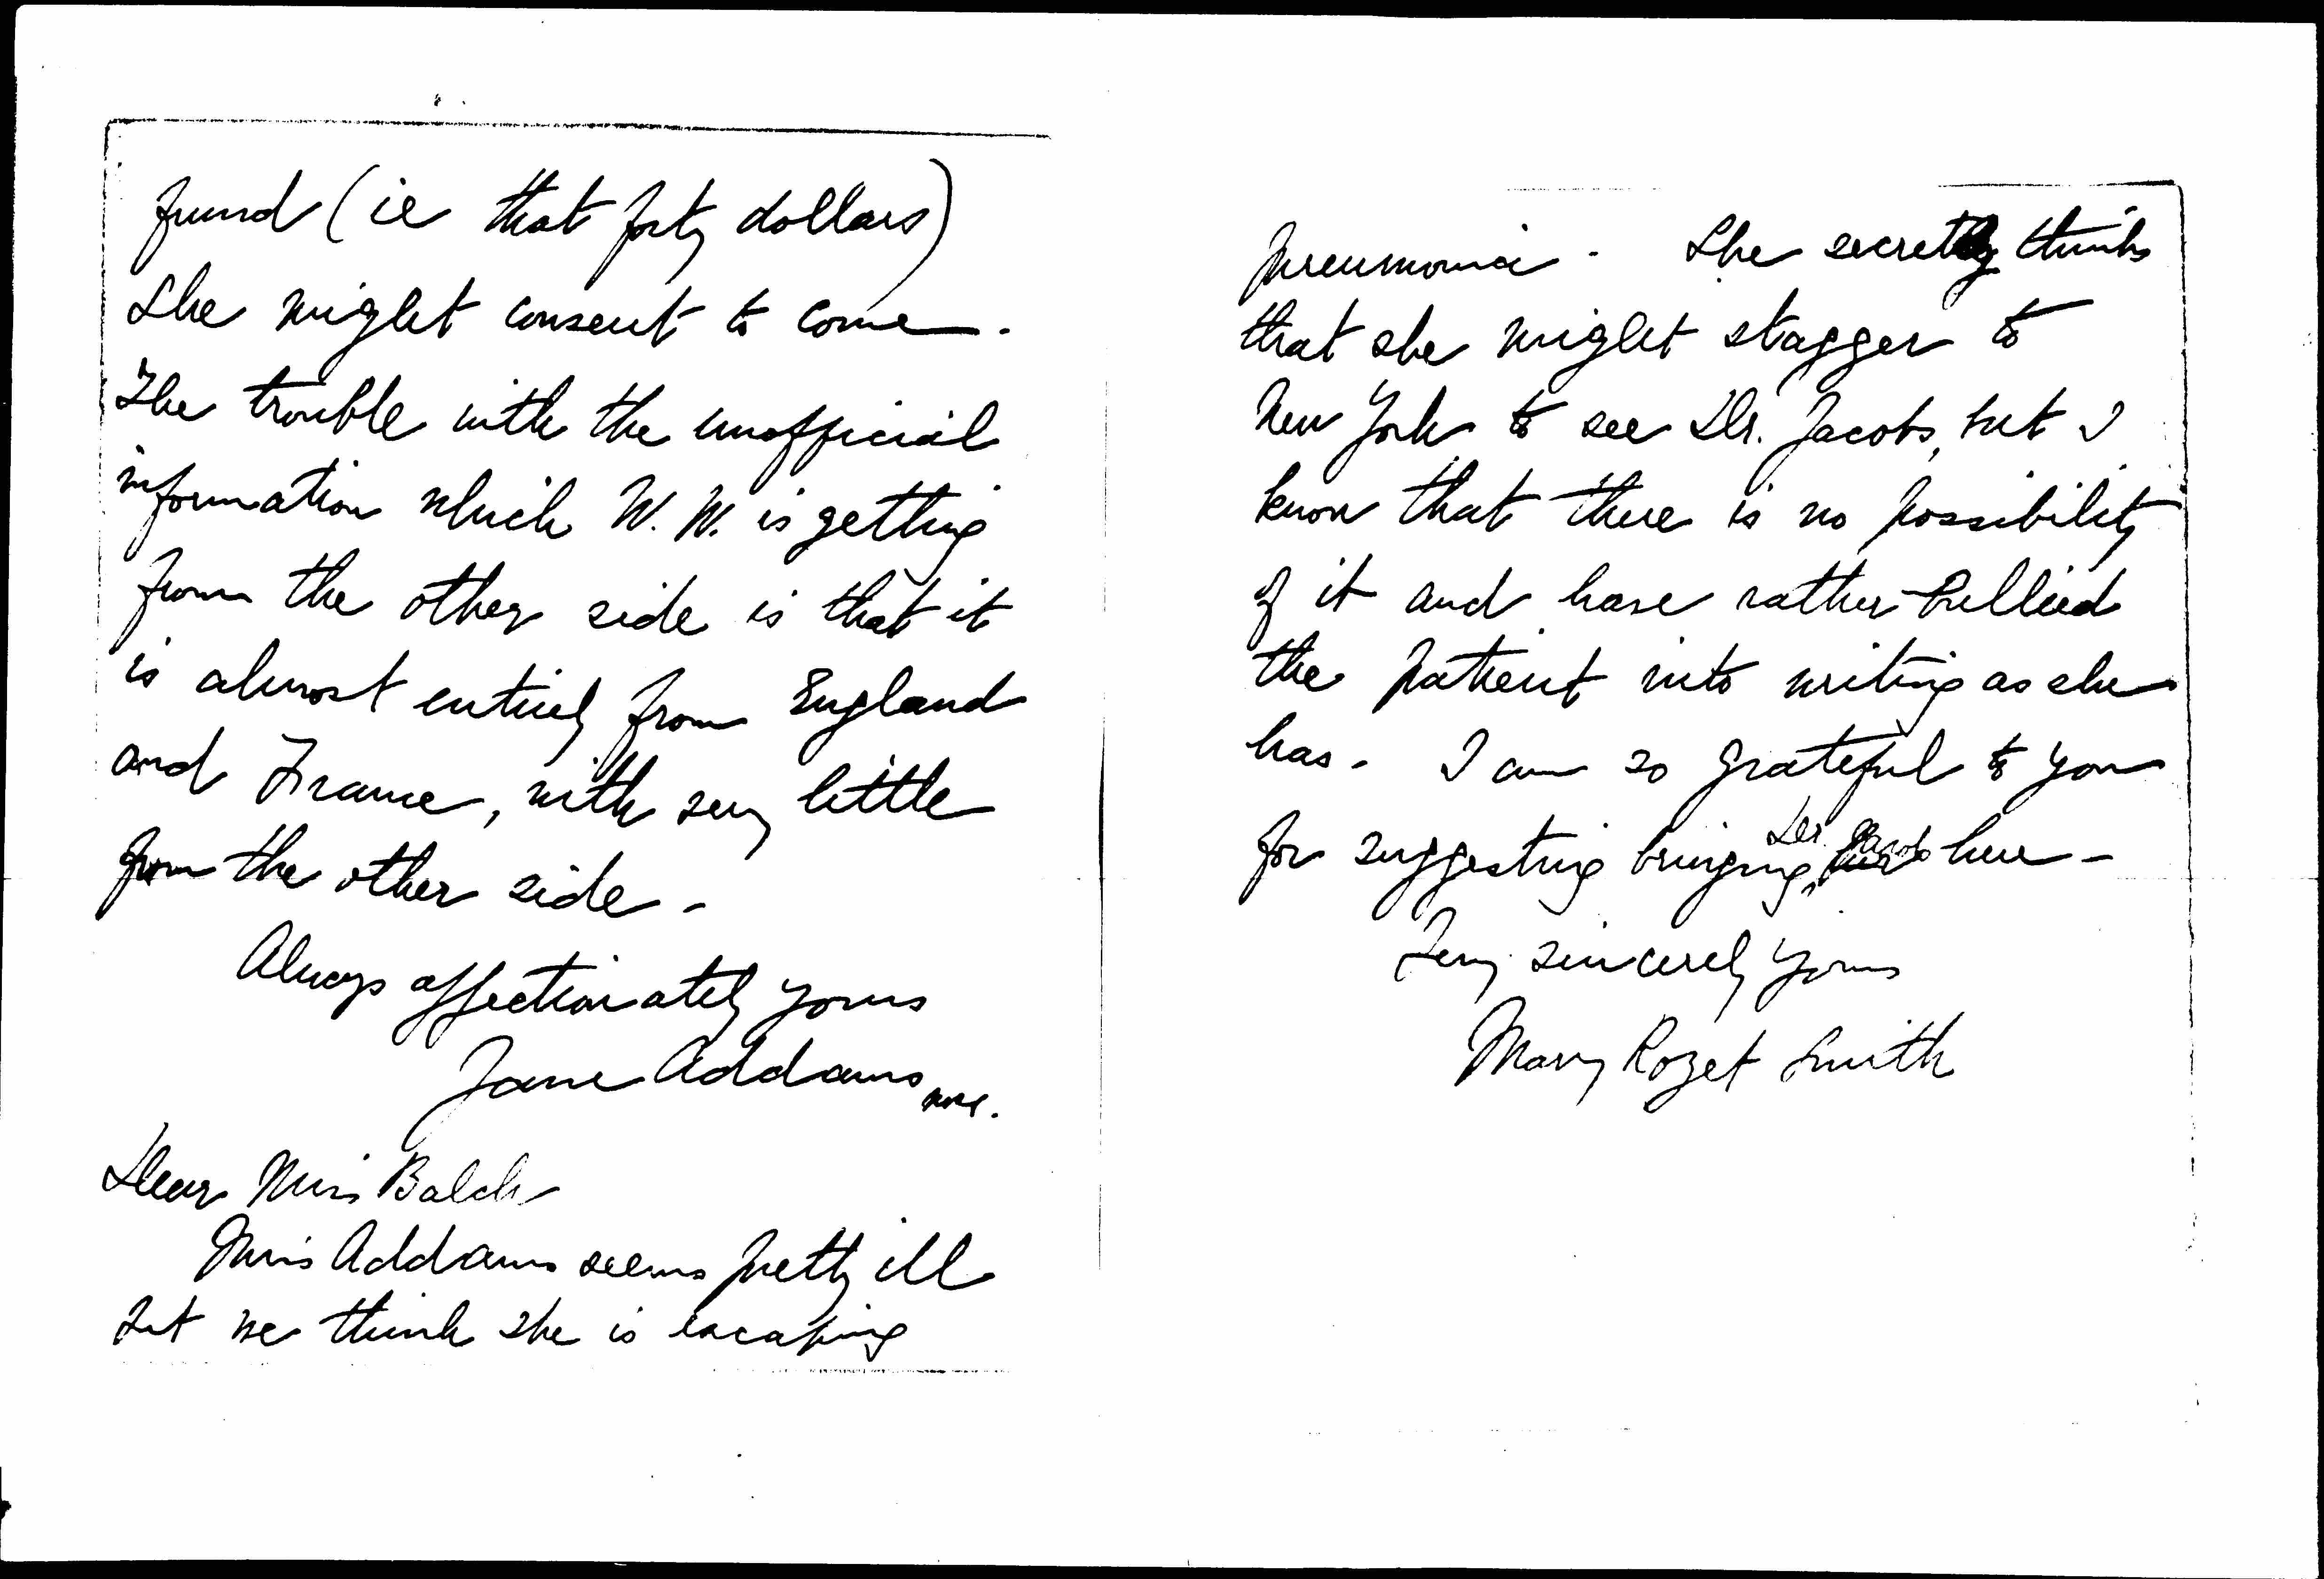 fund (ie that forty dollars)
she might consent to come.
The trouble with the unofficial
information which W. W. is getting
from the other side is that it
is almost entirely from England
and France, with very little
from the other side -
Always affectionately yours
Jane Addams
Dear Miss Balch
Miss Addams seems pretty ill
but we think she is escaping
pneumonia - She secretly thinks
that she might stagger to
New York to see Dr. Jacobs, but I
know that there is no possibility
of it and have rather bullied
the patient into writing as she
has. I am so grateful to you
for suggesting bringing Dr. Jacobs here -
Very sincerely yours
Mary Rozet Smith